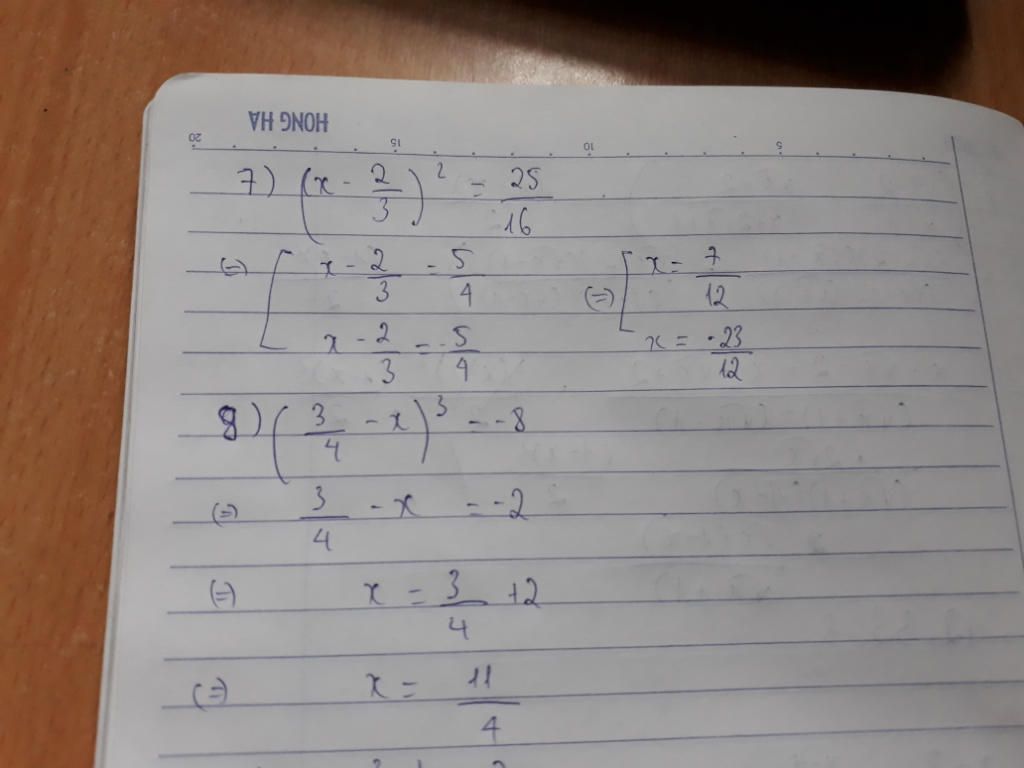 HONG HA
20 15 10 5
7) (x - 2/3)^2 = 25/16
(=) [ x - 2/3 = 5/4 (=) [ x = 7/12
x - 2/3 = -5/4 x = -23/12
8) (3/4 - x)^3 = -8
(=) 3/4 - x = -2
(=) x = 3/4 + 2
(=) x = 11/4